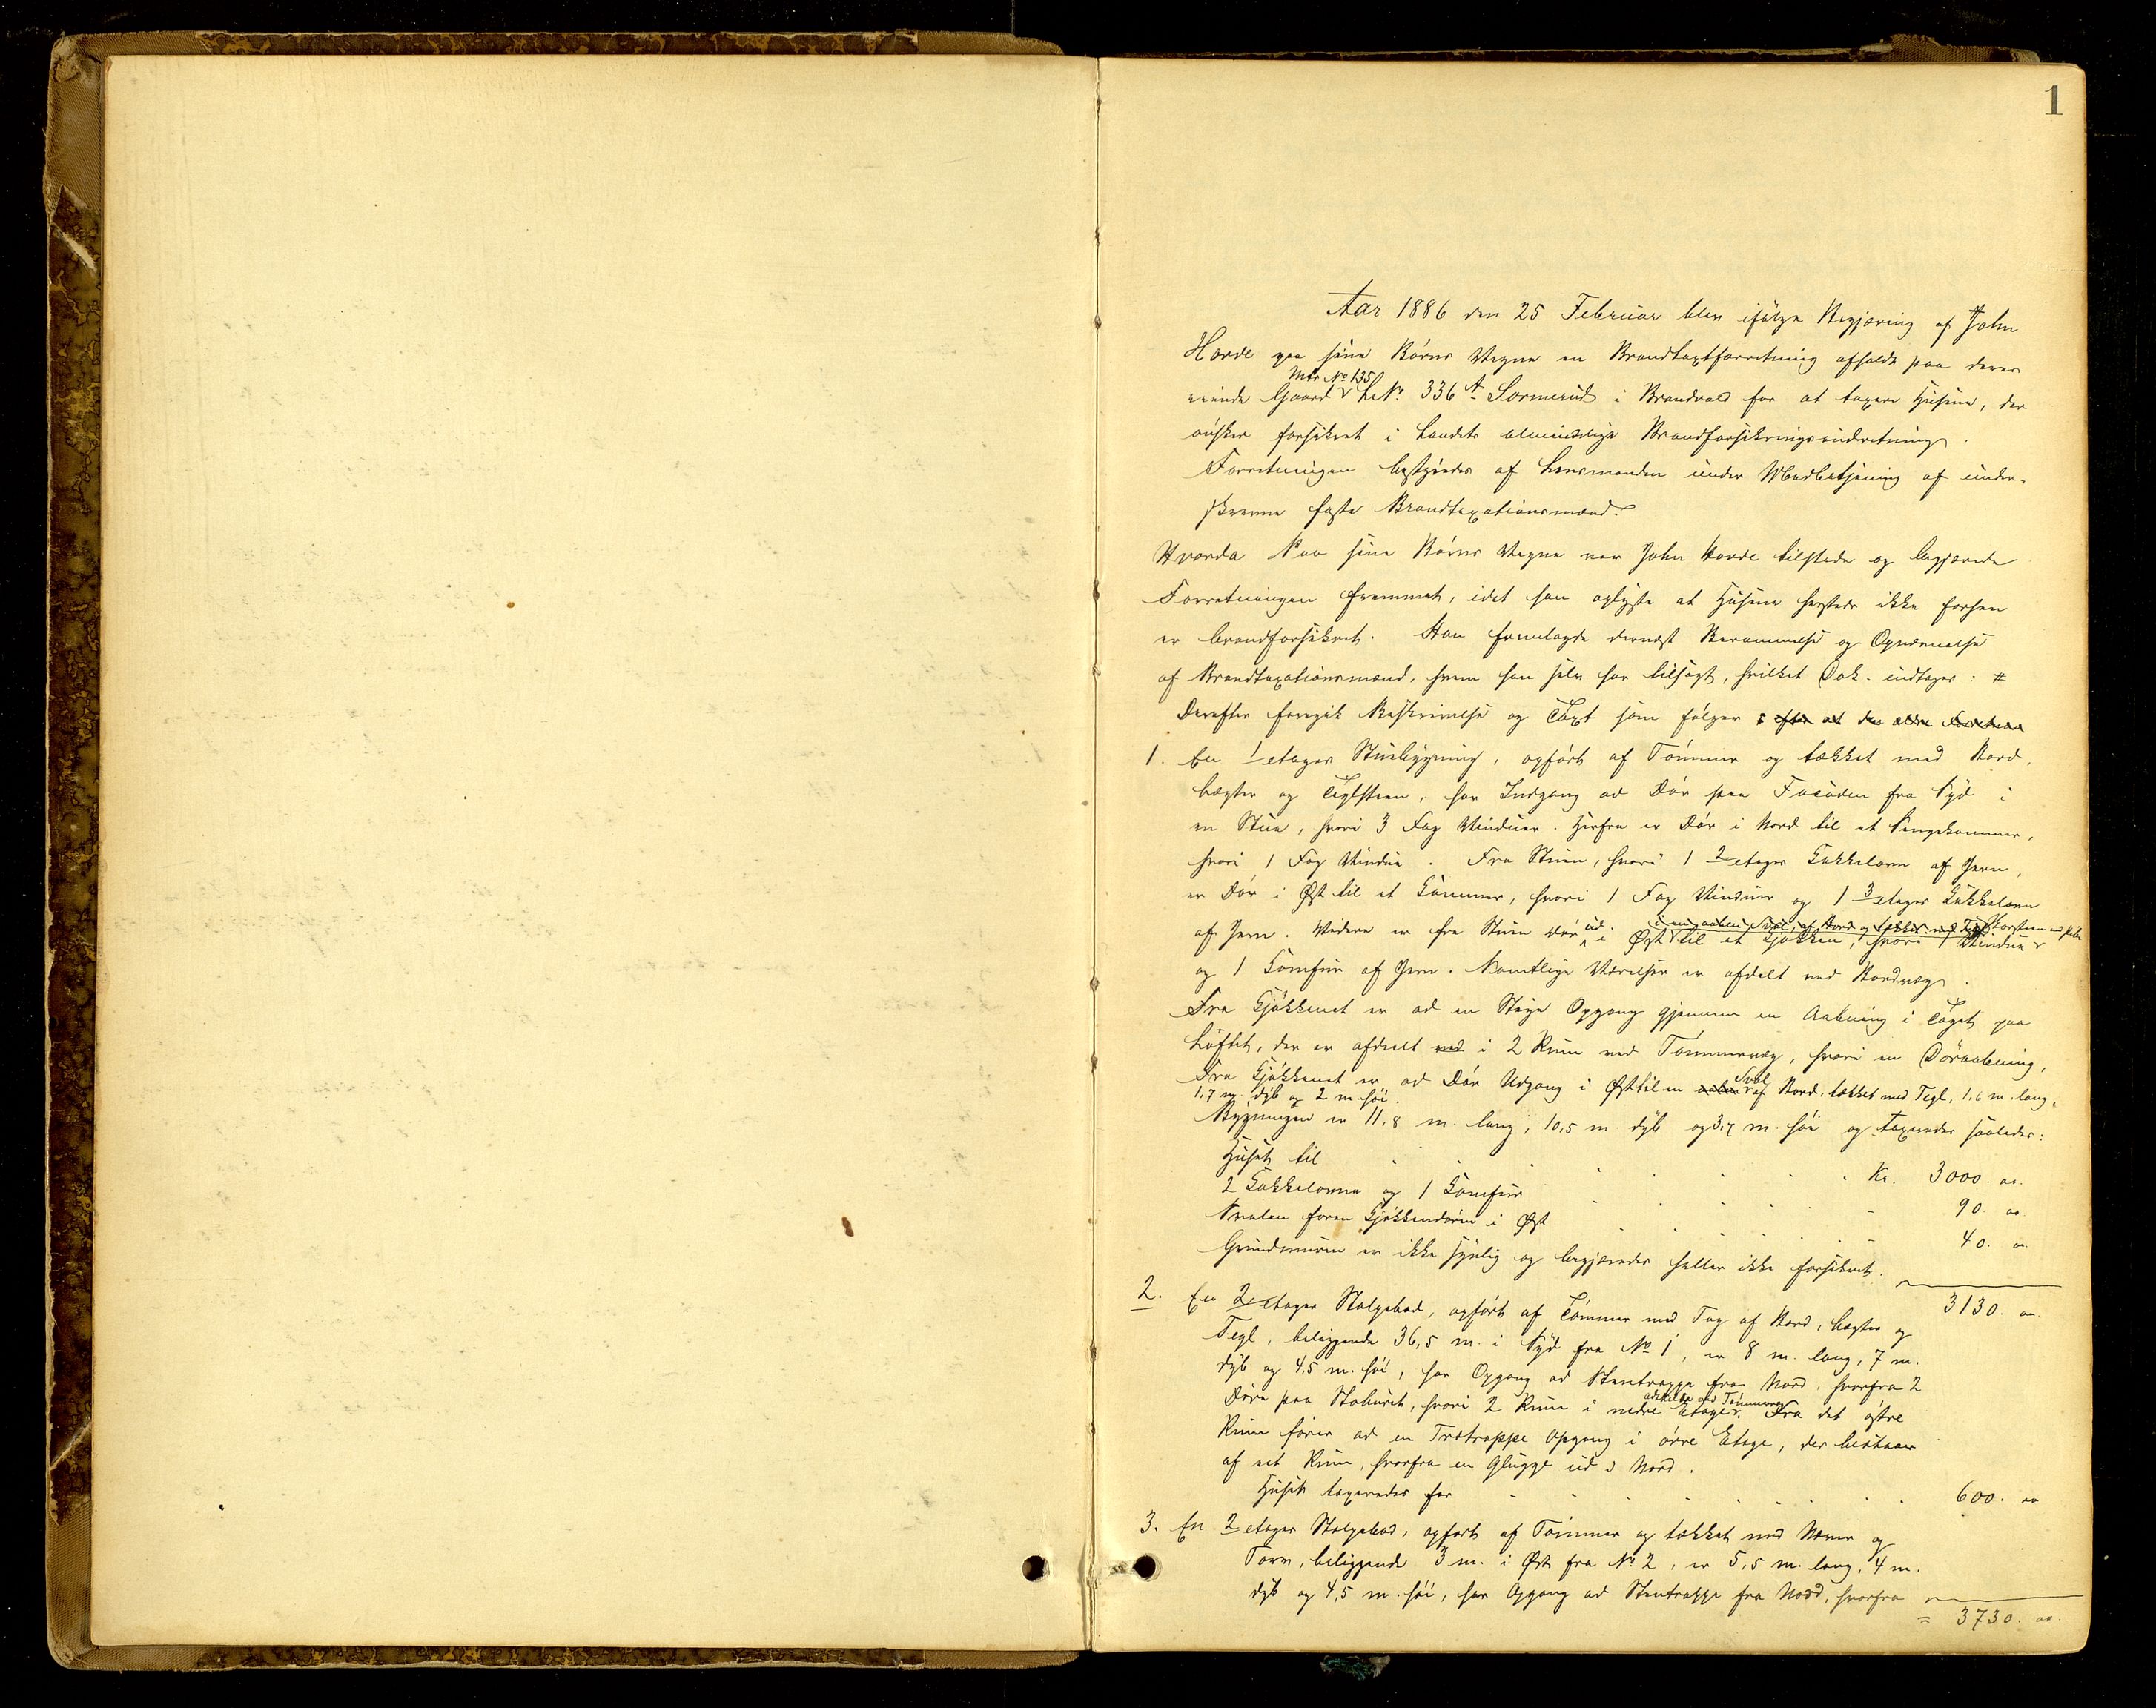 1
Aar 1886 den 25 Februar blev ifølge Begjæring af John
Horde paa sine Børns Vegne en Brandtaxtforretning afholdt paa deres
Mtr No 135
eiende Gaard LNo. 336 A Sormerud i Brandval for at taxere Husene, der
ønskes forsikret i Landets almindelige Brandforsikringsindretning.
Forretningen bestyredes af Lensmanden under Medbetjening af under-
skrevne faste Brandtaxationsmænd.
Hvorda Paa sine Børns Vegne var John Horde tilstede og begjærede
Forretningen fremmet, idet han oplyste at Husene hersteds ikke forhen
er brandforsikret. Han fremlagde dernæst Berammelse og Opnævnelse
af Brandtaxationsmænd, hvem han selv har tilsagt, hvilket Dok. indtages: #
Derefter foregik Beskrivelse og Taxt som følger: efter at den
1. En 1 etages Stuebygning, opført af Tømmer og tækket med Bord,
Lægter og Teglsteen, har Indgang ad Dør paa Facaden fra Syd i
en Stue, hvori 3 Fag Vinduer. Herfra er Dør i Nord til et Sengekammer,
hvori 1 Fag Vindue. Fra Stuen, hvori 1 2 etages Kakkelovn af Jern,
er Dør i Øst til et Kammer, hvori 1 Fag Vinduer og 1 3 etages Kakkelovn
ud. i en aaben Sval, af Bord og tækket med Tegl Skorsteen med Pibe
af Jern. Videre er fra Stuen Dør i Øst til et Kjøkken, hvori 1 Vindue
og 1 Komfur af Jern. Samtlige Værelser er afdelt med Bordvæg.
Fra Kjøkkenet er ad en Stige Opgang gjennem en Aabning i Taget paa
Loftet, der er afdeelt med i 2 Rum ved Tømmervæg, hvori en Døraabning.
Fra Kjøkkenet er ad Dør Udgang i Øst til en Sval af Bord, tækket med Tegl, 1,6 m lang,
1,7 m. dyb og 2 m. høi.
Bygningen er 11,8 m. lang, 10,5 m. dyb og 3,7 m. høi og taxeredes saaledes:
Huset til Kr. 3000. oo.
2 Kakkelovne og 1 Komfur 90. oo
Svalen foran Kjøkkendøren i Øst 40. oo
Grundmuren er ikke synlig og begjæredes heller ikke forsikret.
3130. oo
2. En 2 etages Stolpebod, opført af Tømmer med Tag af Bord, Lægter og
Tegl, beliggende 36,5 m. i Syd fra No 1, er 8 m. lang, 7 m.
dyb og 4,5 m. høi, har Opgang ad Stentrappe fra Nord, hvorfra 2
adskilte ved Tømmervæg
Døre paa Stabburet, hvori 2 Rum i nedre Etage. Fra det østre
Rum fører ad en Trætrappe Opgang i øvre Etage, der bestaaer
af eet Rum, hvorfra en Glugge ud i Nord.
Huset taxeredes for 600. oo
3. En 2 etages Stolpebod, opført af Tømmer og tækket med Næver og
Torv, beliggende 3 m. i Øst fra No 2, er 5,5 m. lang, 4 m.
dyb og 4,5 m. høi, har Opgang ad Stentrappe fra Nord, hvorfra
= 3730. oo.